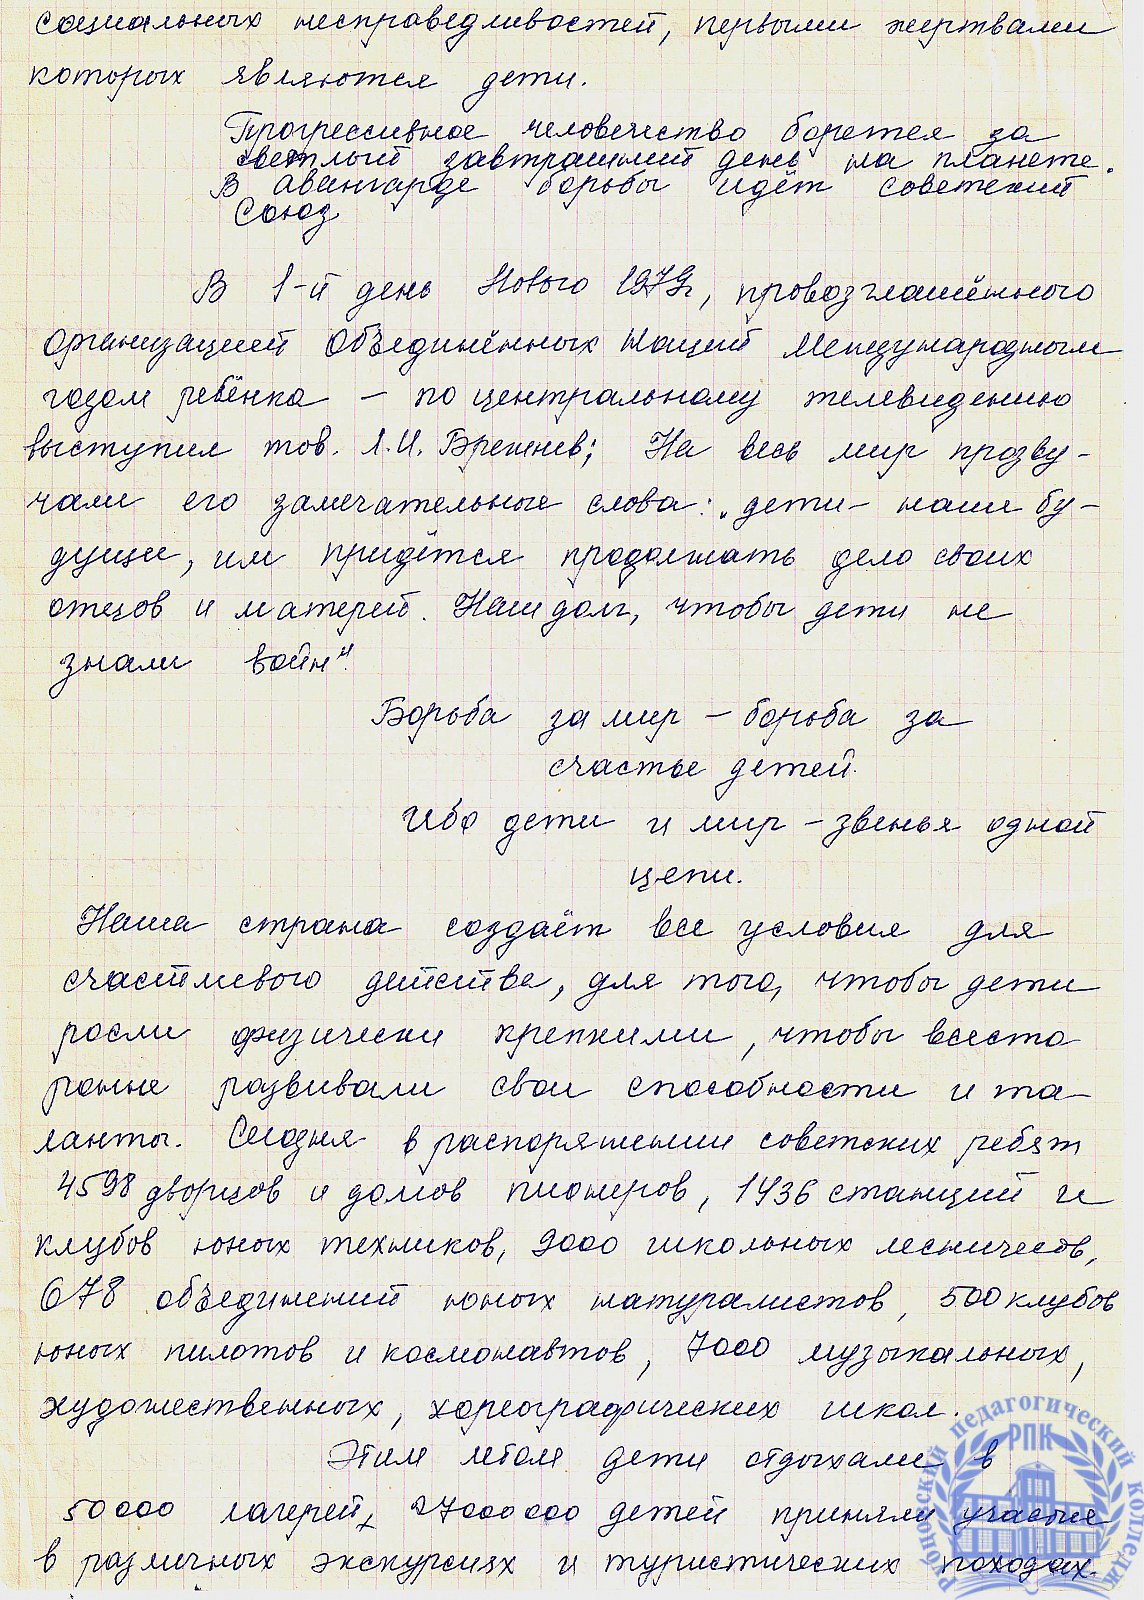 социальных несправедливостей, первыми жертвами
которых являются дети.
Прогрессивное человечество борется за
светлый завтрашний день на планете.
В авангарде борьбы идёт советский
Союз
В 1-й день Нового 1979г, провозглашённого
Организацией Объединённых Наций Международным
годом ребёнка – по центральному телевидению
выступил тов. Л.И. Брежнев; На весь мир прозву-
чали его замечательные слова: „дети – наше бу-
дущее, им придётся продолжать дело своих
отцов и матерей. Наш долг, чтобы дети не
знали войн".
Борьба за мир – борьба за
счастье детей.
Ибо дети и мир – звенья одной
цепи.
Наша страна создаёт все условия для
счастливого детства, для того, чтобы дети
росли физически крепкими, чтобы всесто
ронне развивали свои способности и та-
ланты. Сегодня в распоряжении советских ребят
4598 дворцов и домов пионеров, 1436 станций и
клубов юных техников, 9000 школьных лесничеств,
678 объединений юных натуралистов, 500 клубов
юных пилотов и космонавтов, 7000 музыкальных,
художественных, хореографических школ.
Этим летом дети отдыхали в
50000 лагерей, 27000000 детей приняли участие
в различных экскурсиях и туристических походах.
Рубцовский педагогический колледж
РПК